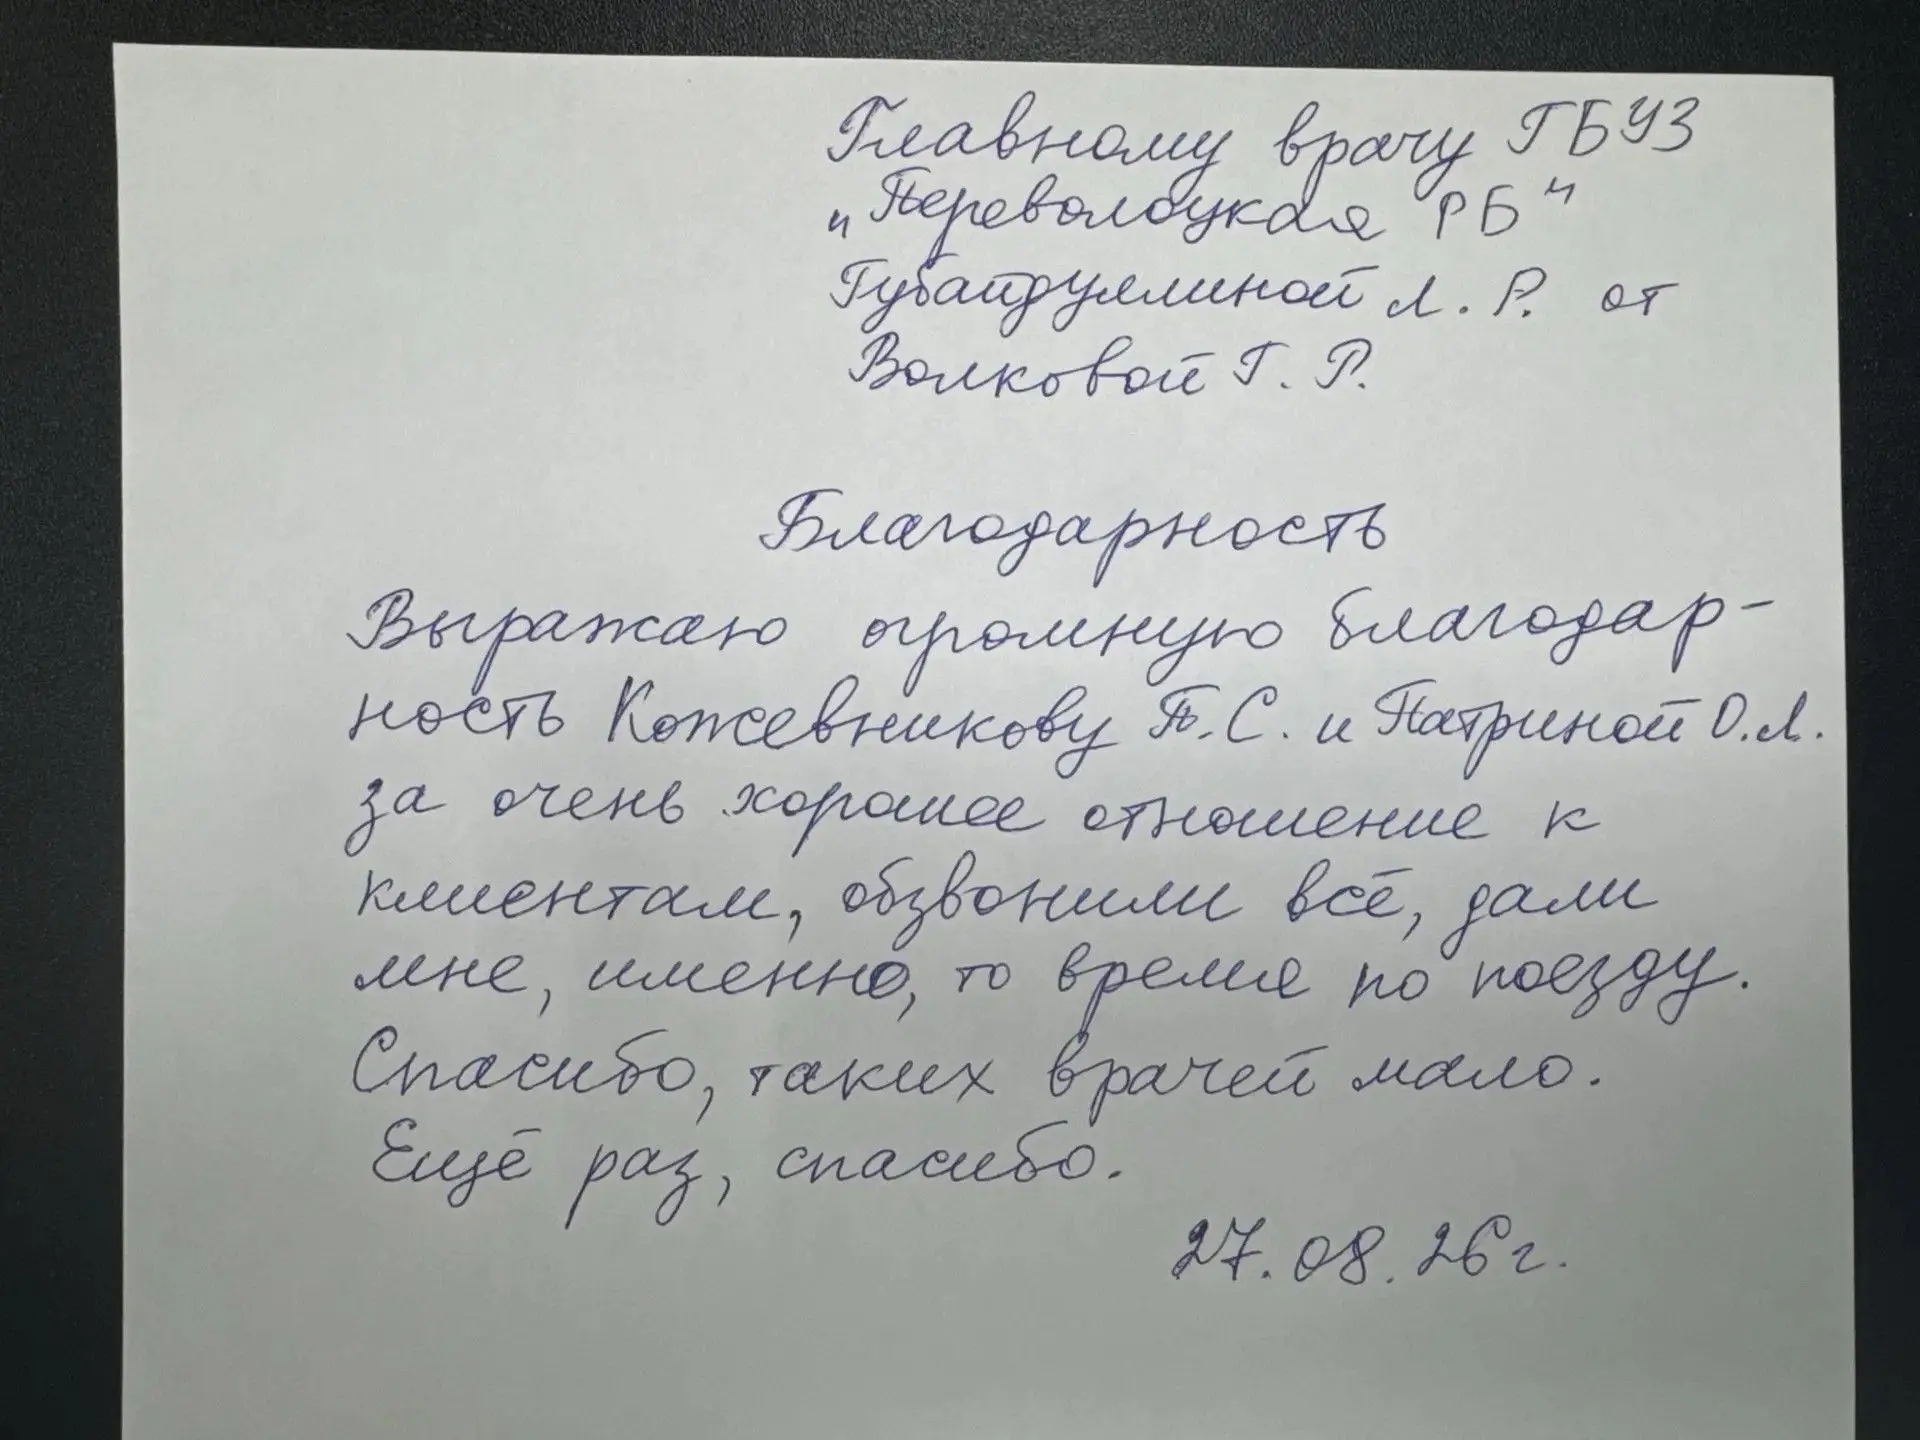 Главному врачу ГБУЗ
"Переволоцкая РБ"
Губайдуллиной Л. Р. от
Волковой Г. Р.
Благодарность
Выражаю огромную благодар-
ность Кожевникову П.С. и Патриной О.Л.
за очень хорошее отношение к
клиентам, обзвонили всё, дали
мне, именно, то время по поезду.
Спасибо, таких врачей мало.
Ещё раз, спасибо.
27.08.26г.